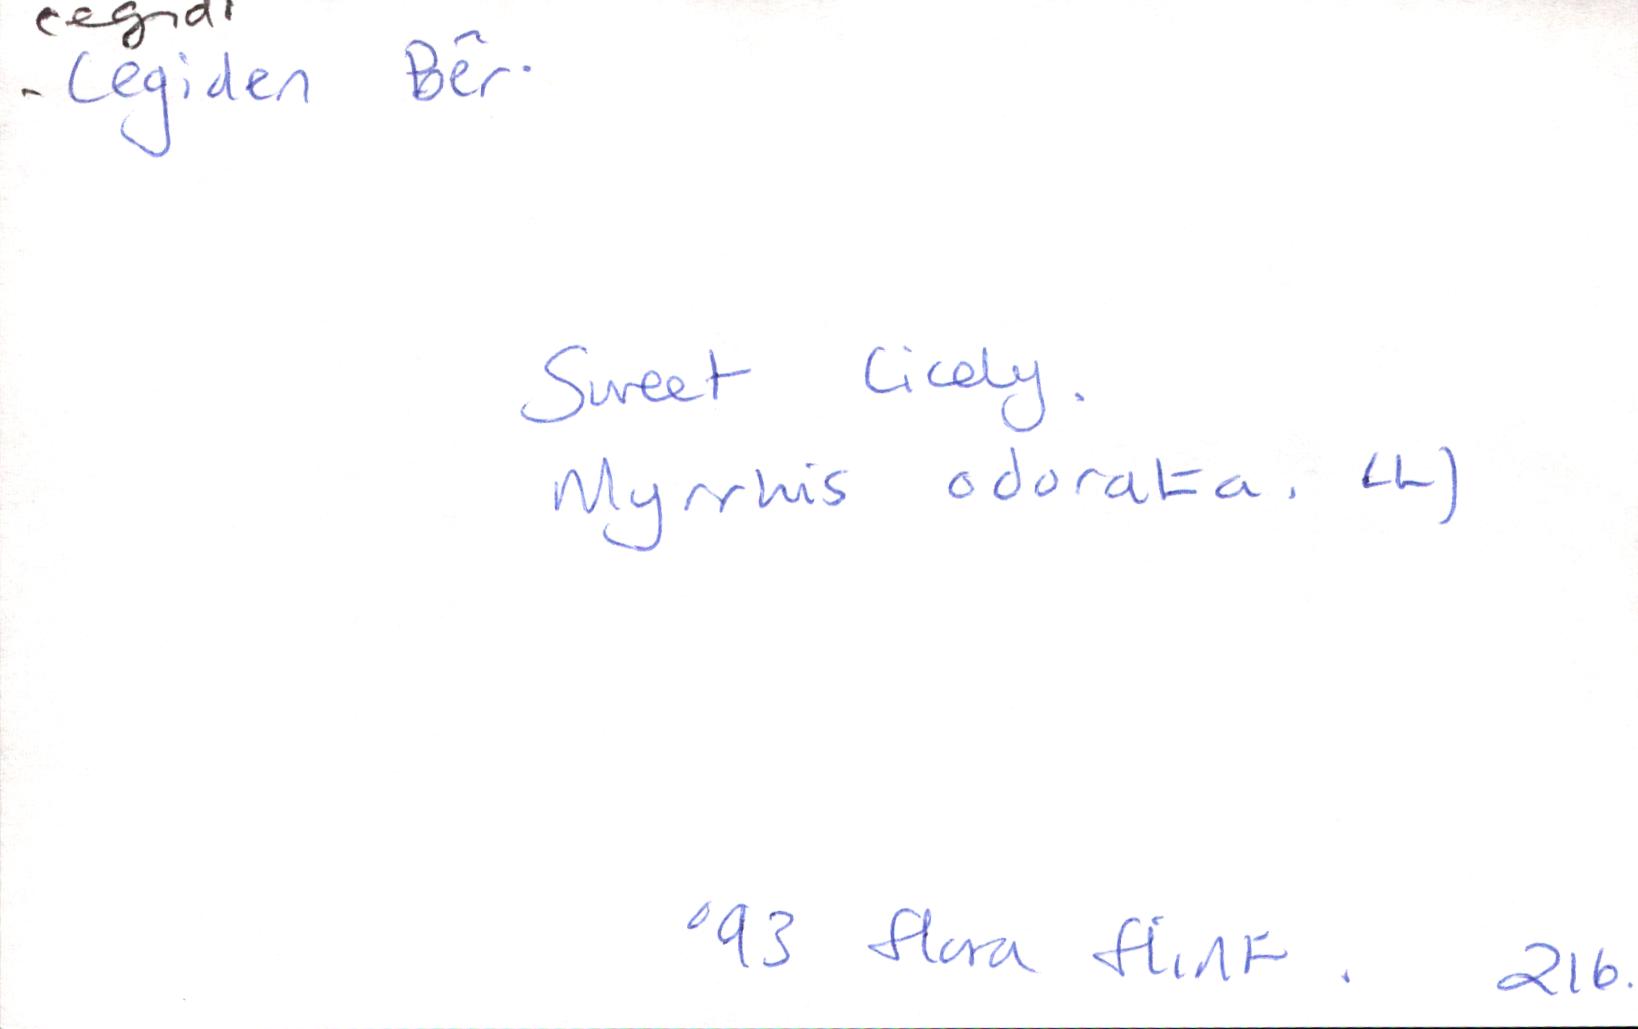 cegidi
- Cegiden Bêr.
Sweet Cicely.
Myrrhis odorata. (L)
'93 flora flint. 216.